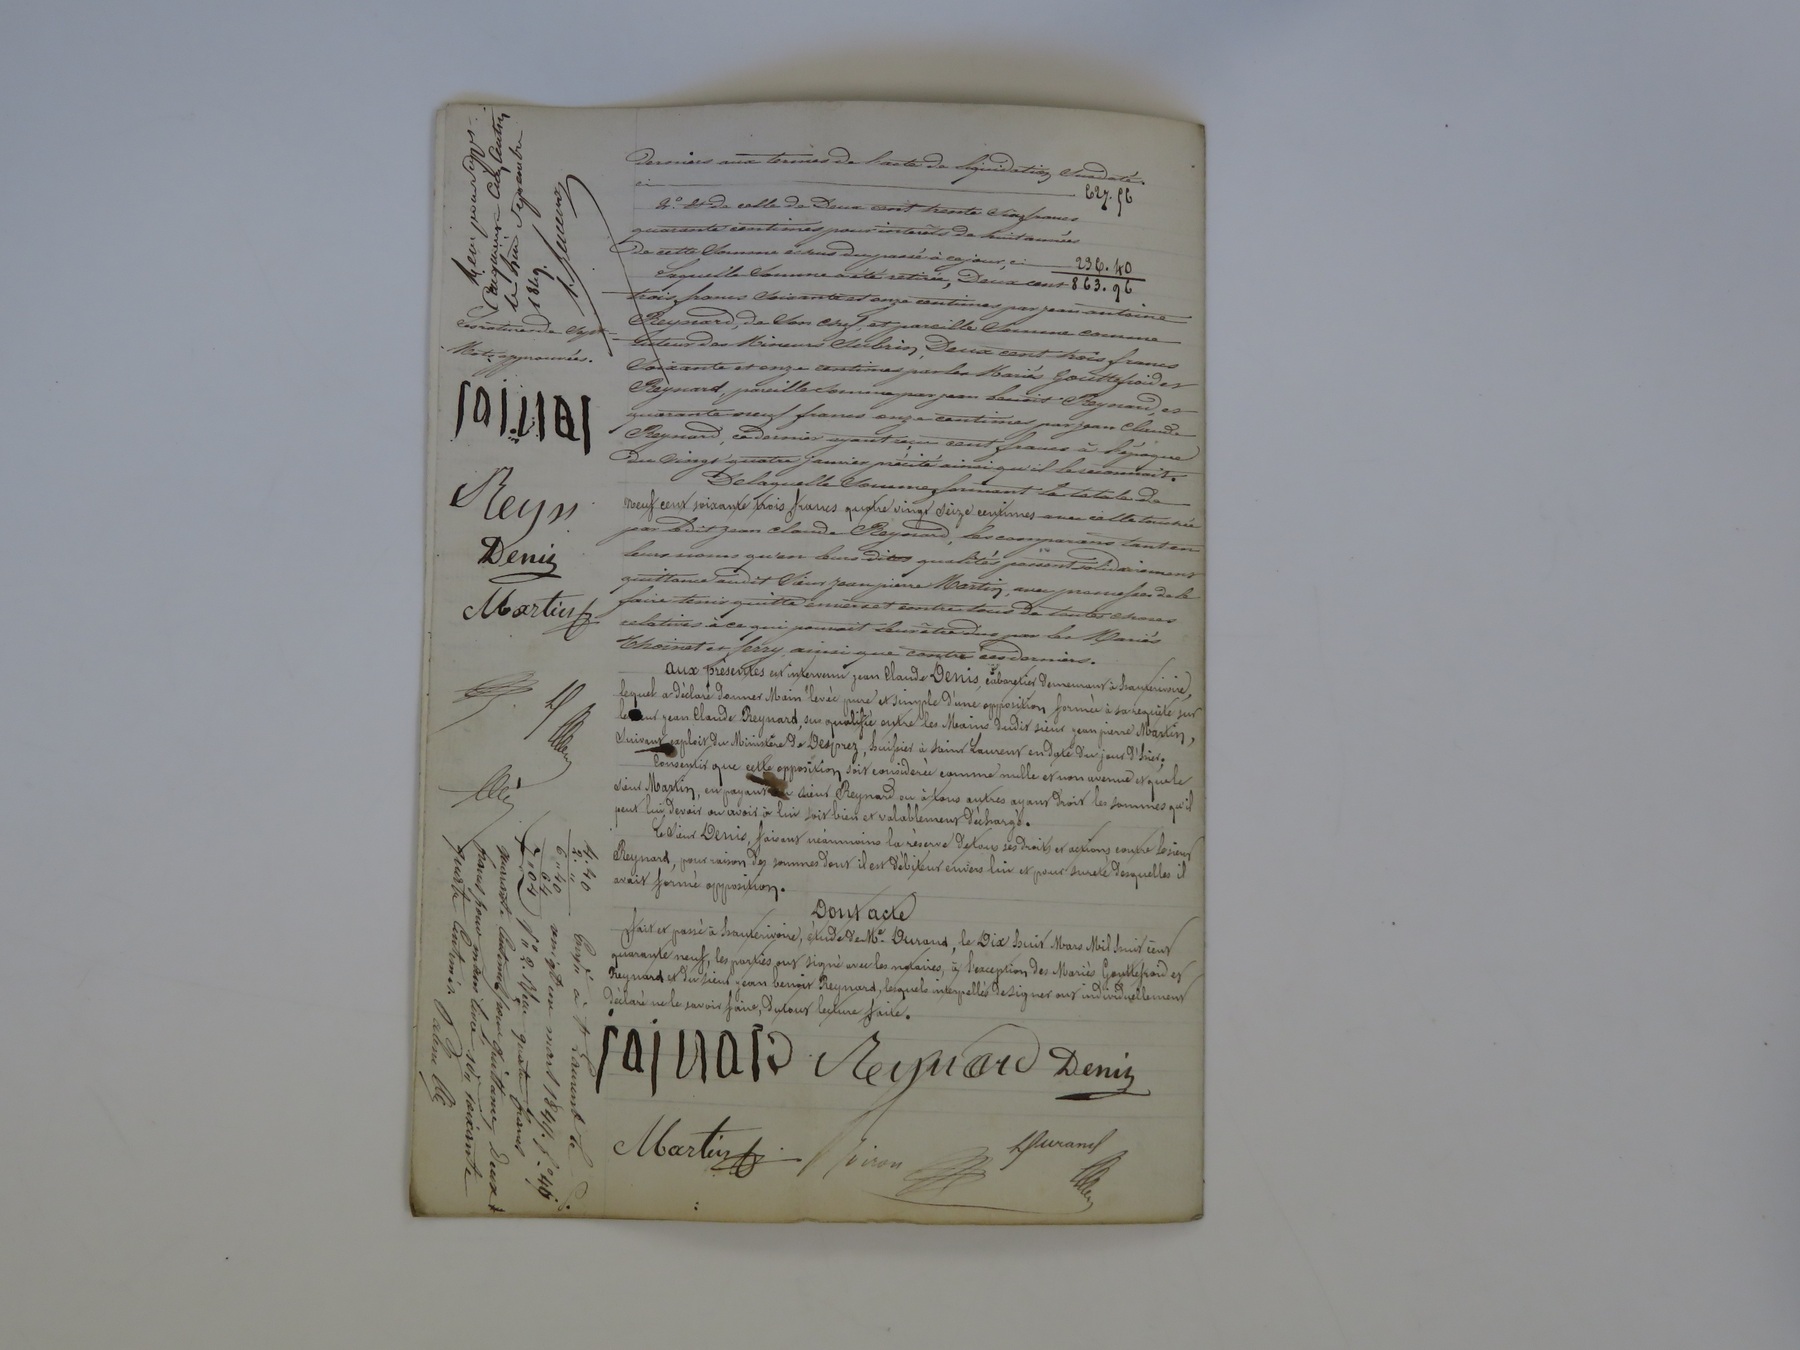 derniers aux termes de l'acte de liquidation susdaté.
ci 627.56
2.° Et de celle de Deux cent trente six francs
quarante centimes pour intérêts de huit années
de cette Somme échus du passé à ce jour, ci 236.40
Laquelle Somme a été retirée, Deux cent 863.96
trois francs soixante et onze centimes par jean antoine
Reynard, de Son chef, et pareille Somme comme
tuteur des Mineurs Subrin, Deux cent trois francs
soixante et onze centimes par les Mariés Gouttefroid et
Reynard, pareille somme par jean benoit Reynard, et
quarante neuf francs onze centimes par jean Claude
Reynard, ce dernier ayant reçu cent francs à l'époque
du vingt quatre janvier précité ainsi qu'il le reconnait.
De laquelle Somme, formant le totale de
neuf cent soixante trois francs quatre vingt seize centimes avec celle touchée
par ledit jean Claude Reynard, les comparans tant en
leurs noms qu'en leurs dites qualités passent solidairement
quittance audit Sieur jean pierre Martin, avec promesse de le
faire tenir quitte envers et contre tous de toutes choses
relatives à ce qui pouvait leur être dus par les Mariés
Thoinet et ferry, ainsi que contre ces derniers.
aux présentes est intervenu jean Claude Denis, cabaretier demeurant à hauterivoire,
lequel a déclaré donner Main levée pure et simple d'une opposition formée à sa requête sur
le sieur jean Claude Reynard, sus qualifié entre les Mains dudit sieur jean pierre Martin,
suivant exploit du Ministère de Desprez, huissier à saint Laurent en date du jour d'hier.
Consentir que cette opposition soit considérée comme nulle et non avenue et que le
sieur Martin, en payant au sieur Reynard ou à tous autres ayant droit les sommes qu'il
peut lui devoir ou avoir à lui soit bien et valablement déchargé.
Le sieur Denis, faisant néanmoins la réserve de tous ses droits et actions contre le sieur
Reynard, pour raison des sommes dont il est débiteur envers lui et pour sureté desquelles il
avait formé opposition.
Dont acte
fait et passé à hauterivoire, étude de Me. Durand, le Dix huit Mars Mil huit cent
quarante neuf, les parties ont signé avec les notaires, à l'exception des Mariés Gouttefroid et
Reynard et du sieur jean benoit Reynard, lesquels interpellés de signer ont individuellement
déclaré ne le savoir faire, du tout lecture faite.
Reynard Denis
Martin Durand
le huit Septembre
1849
Mots approuvés.
Reyn
Denis
Martin
4.40
2."
6.40
64
7.04
Enrgté à St Laurent le
vingt un mars 1849. f.° 46
r.° c. 2. Reçu quatre francs
quarante centimes pour quittance, Deux
francs pour main levée &a soixante
quatre centimes